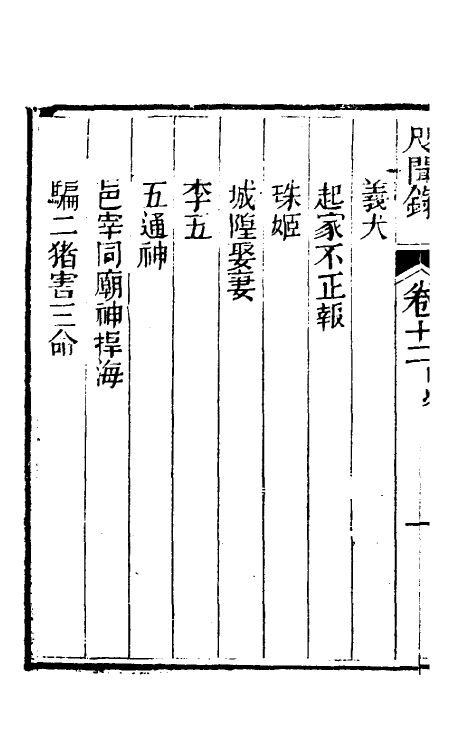 咫聞錄
卷十二目錄
一
義犬
起家不正報
珠姬
城隍娶妻
李五
五通神
邑宰同廟神捍海
騙二猪害三命